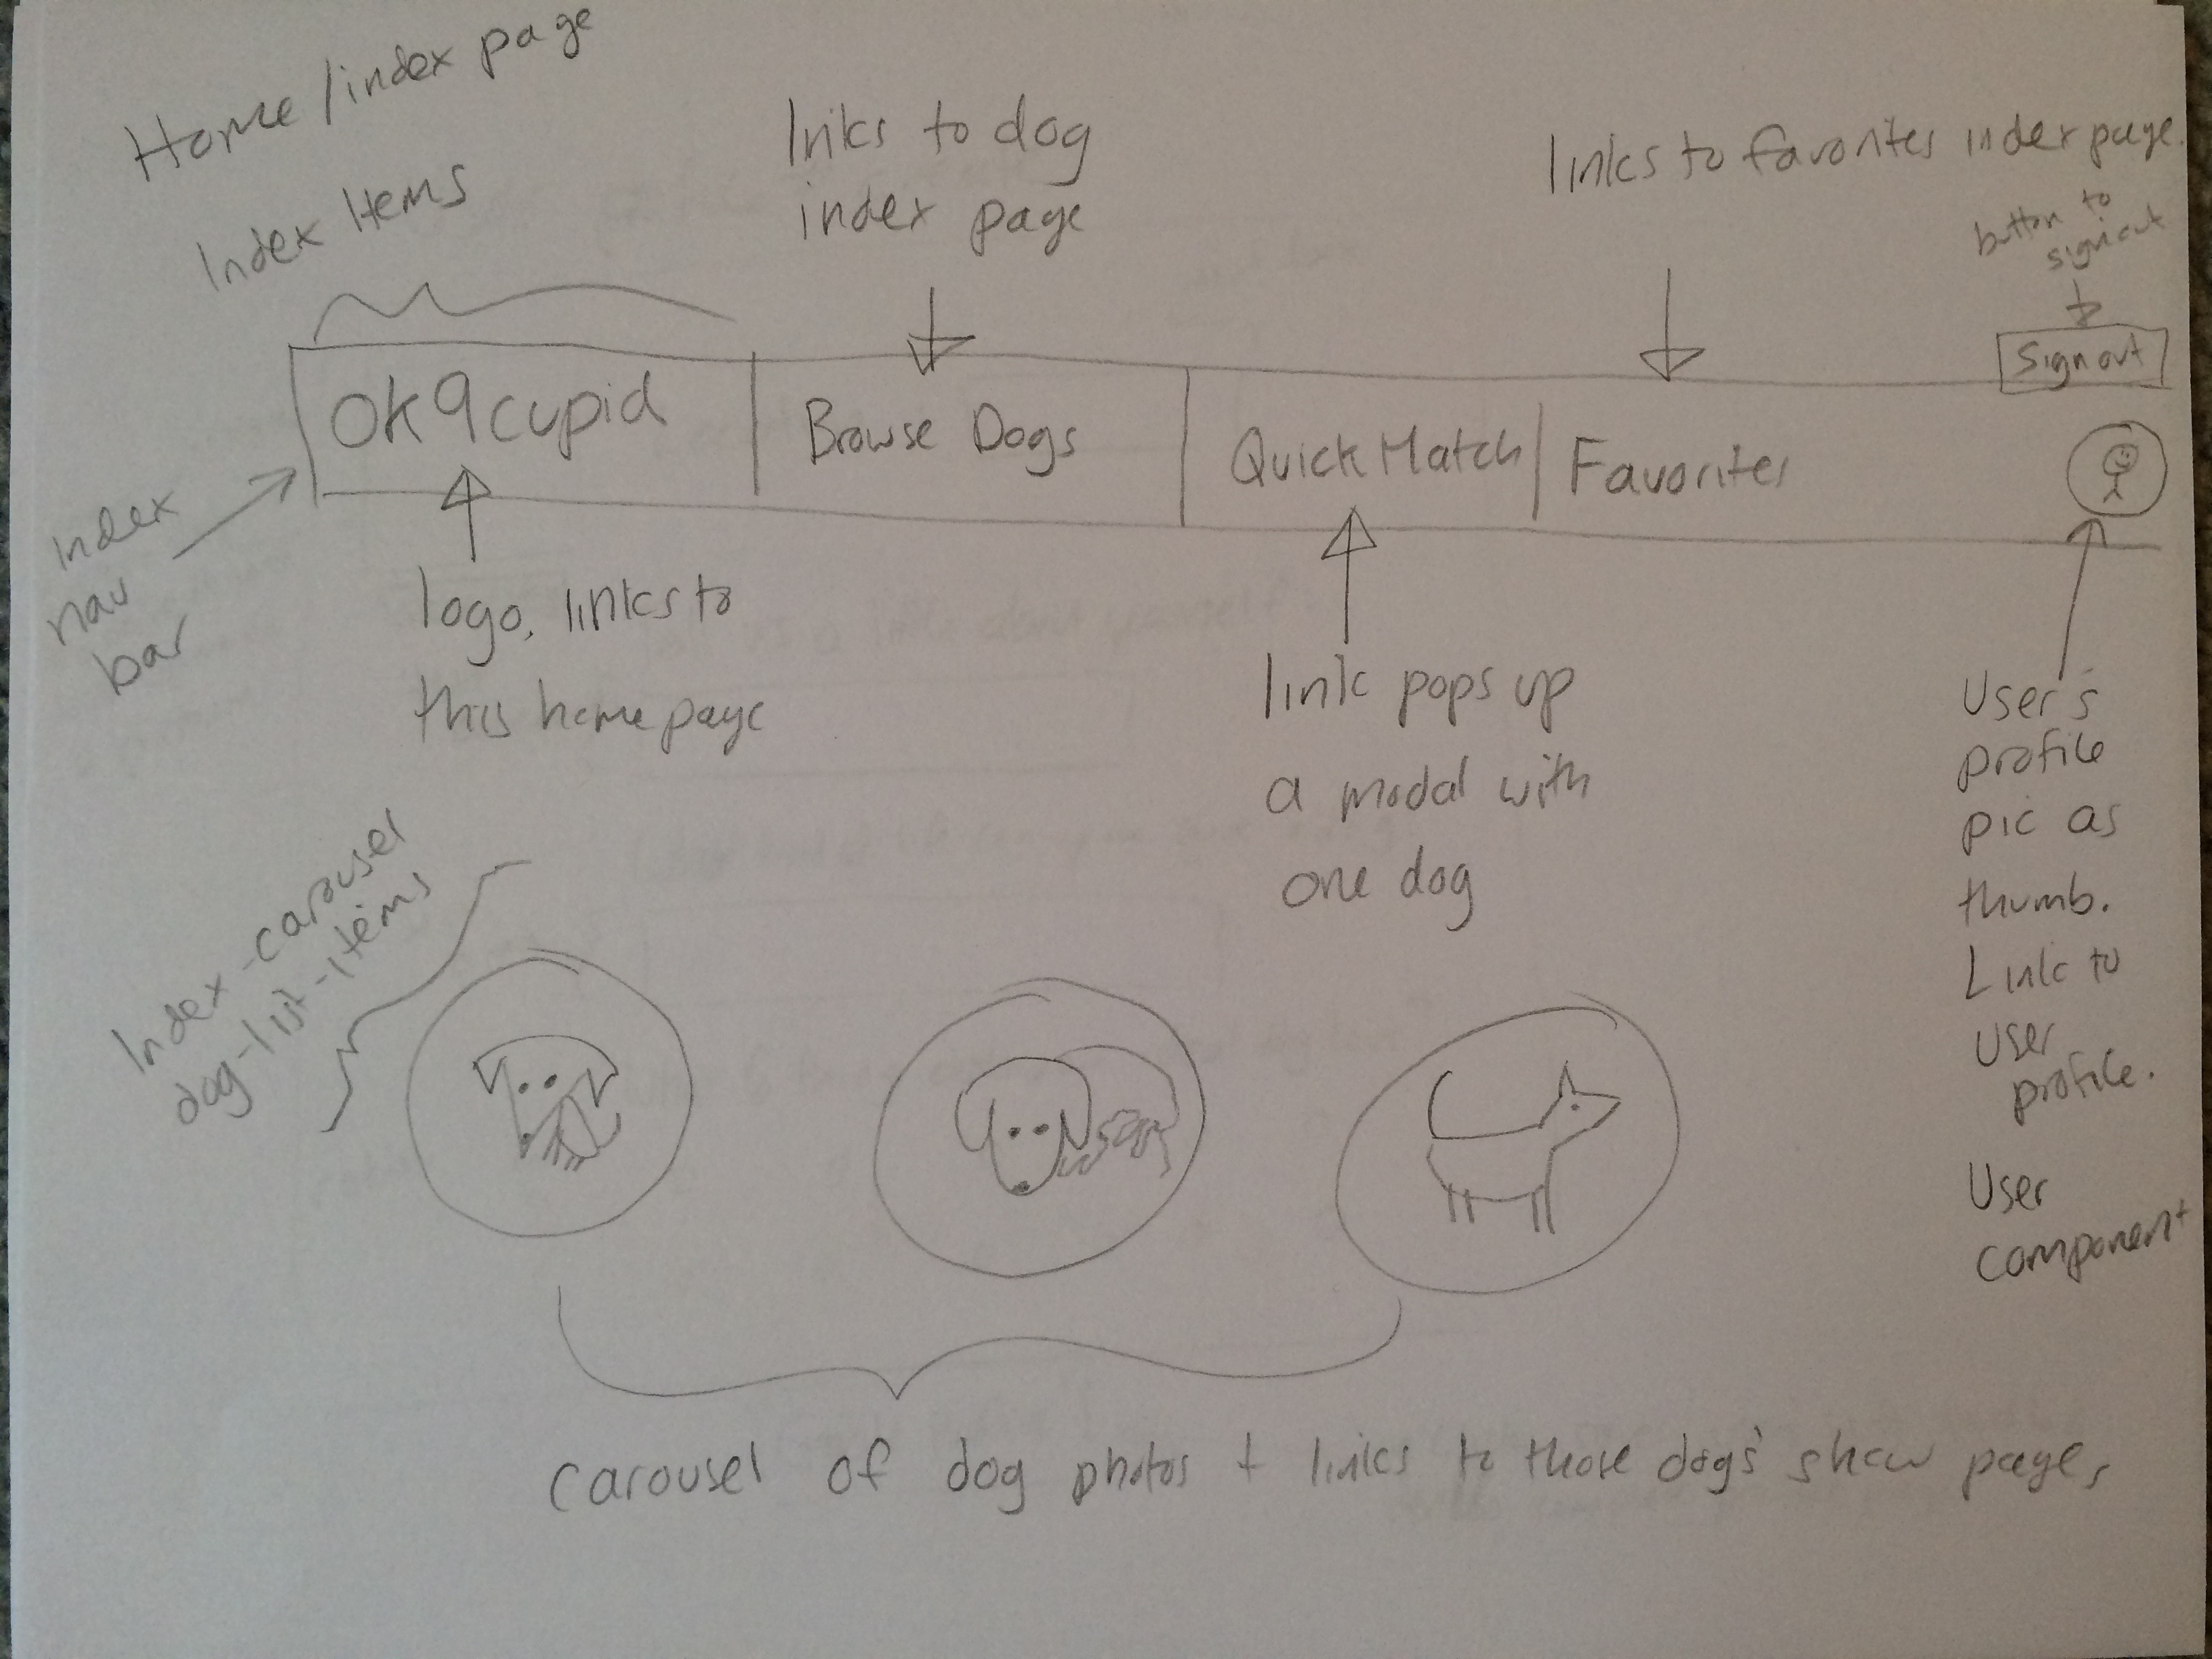 Home/index page
Index Items
links to dog
index page
links to favorites index page.
button to
signout
Sign out
Ok9cupid
Browse Dogs
QuickMatch
Favorites
Index
nav
bar
logo, links to
this home page
link pops up
a modal with
one dog
User's
profile
pic as
thumb.
Link to
user
profile.
User
component
Index-carousel
dog-list-items
carousel of dog photos + links to those dogs' show pages